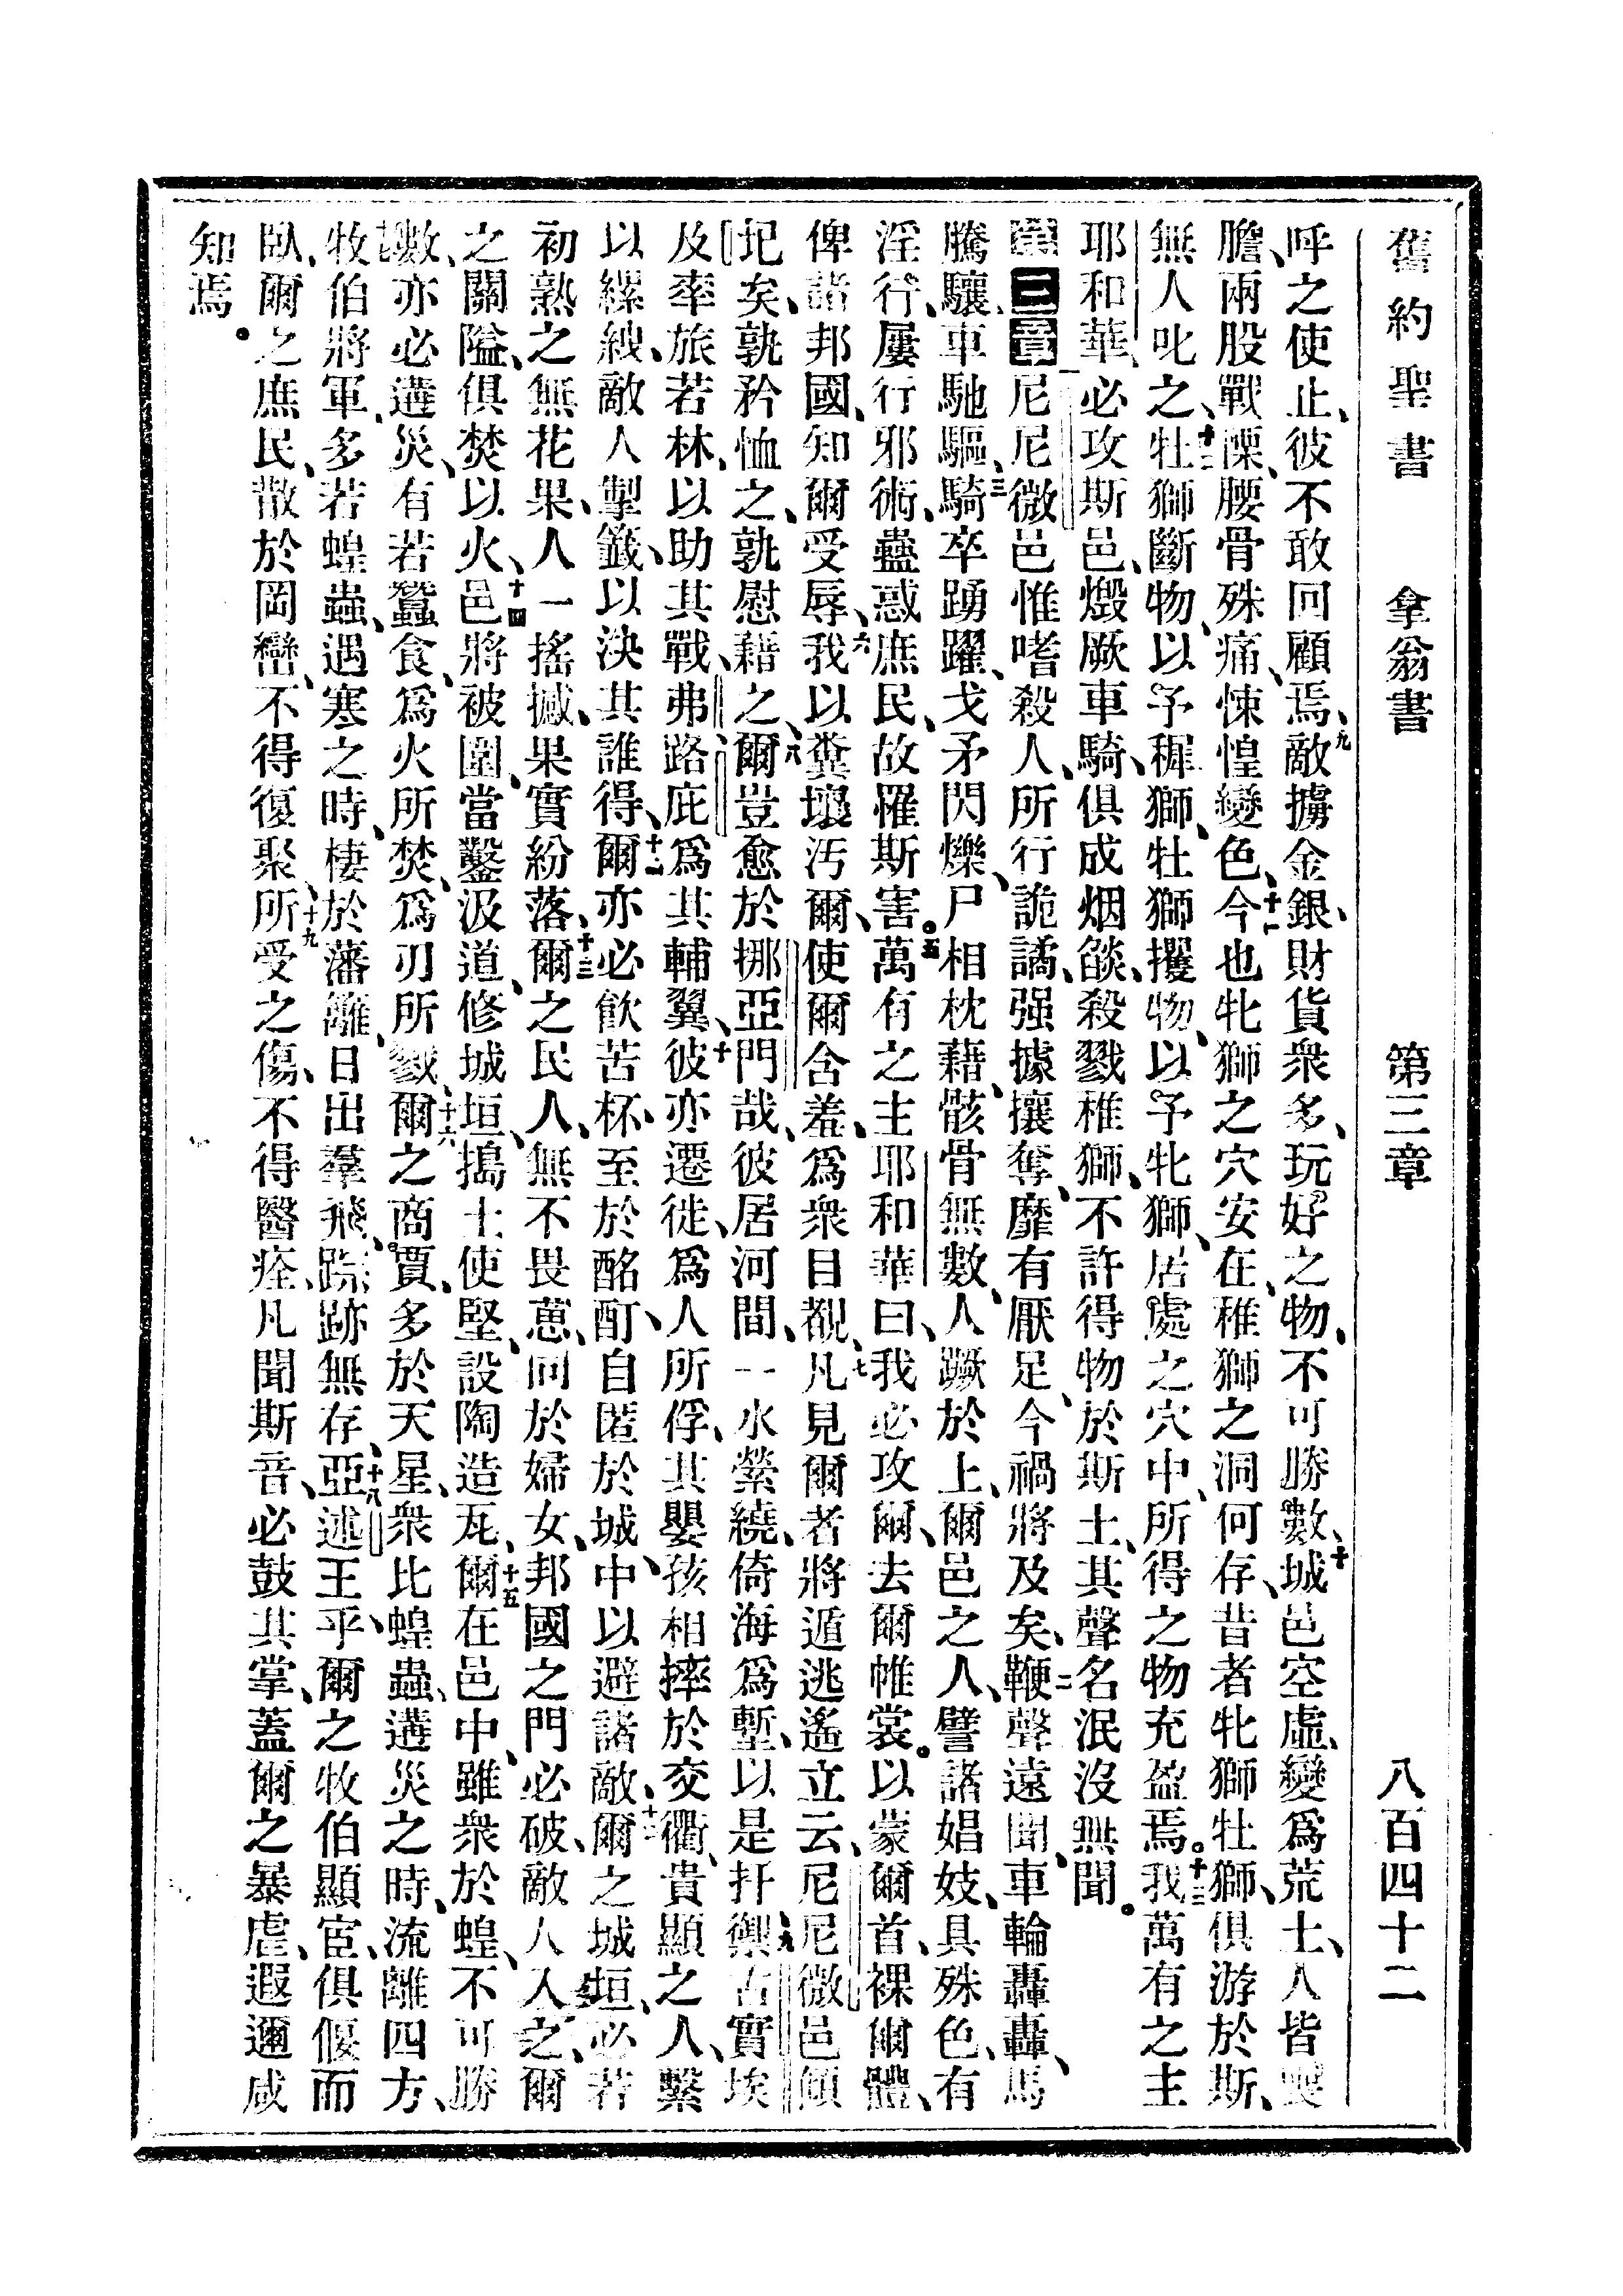 舊約聖書 拿翁書 第三章 八百四十二
呼之使止、彼不敢回顧焉、九敵擄金銀、財貨衆多、玩好之物、不可勝數、十城邑空虛、變爲荒土、人皆喪
膽、兩股戰慄、腰骨殊痛、悚惶變色、十一今也牝獅之穴安在、稚獅之洞何存、昔者牝獅牡獅、俱游於斯、
無人叱之、十二牡獅斷物、以予穉獅、牡獅攫物、以予牝獅、居處之穴中、所得之物充盈焉。十三我萬有之主
耶和華、必攻斯邑、燬厥車騎、俱成烟燄、殺戮稚獅、不許得物於斯土、其聲名泯沒無聞。
第三章 一尼尼微邑惟嗜殺人、所行詭譎、强據攘奪、靡有厭足、今禍將及矣、二鞭聲遠聞、車輪轟轟、馬
騰驤、車馳驅、三騎卒踴躍、戈矛閃爍、尸相枕藉、骸骨無數、人蹶於上、爾邑之人、譬諸娼妓、具殊色、有
淫行、屢行邪術、蠱惑庶民、故罹斯害。五萬有之主耶和華曰、我必攻爾、去爾帷裳。以蒙爾首、裸爾體、
俾諸邦國、知爾受辱、六我以糞壤汚爾、使爾含羞、爲衆目覩、七凡見爾者、將遁逃遙立云、尼尼微邑傾
圮矣、孰矜恤之、孰慰藉之、八爾豈愈於挪亞門哉、彼居河間、一水縈繞、倚海爲塹、以是扞禦、九古實埃
及率旅若林、以助其戰、弗路庇爲其輔翼、十彼亦遷徙、爲人所俘、其嬰孩相摔於交衢、貴顯之人、繫
以縲絏、敵人掣籤、以決其誰得、十一爾亦必飮苦杯、至於酩酊、自匿於城中、以避諸敵、十二爾之城垣、必若
初熟之無花果、人一搖撼、果實紛落、十三爾之民人、無不畏葸、同於婦女、邦國之門必破、敵人入之、爾
之關隘、俱焚以火、十四邑將被圍、當鑿汲道、修城垣、搗土使堅、設陶造瓦、十五爾在邑中、雖衆於蝗、不可勝
數、亦必遘災、有若蠶食、爲火所焚、爲刃所戮、十六爾之商賈、多於天星、衆比蝗蟲、遘災之時、流離四方、
十七牧伯將軍、多若蝗蟲、遇寒之時、棲於藩籬、日出羣飛、踪跡無存、十八亞述王乎、爾之牧伯顯宦、俱偃而
臥、爾之庶民、散於岡巒、不得復聚、十九所受之傷、不得醫痊、凡聞斯音、必鼓其掌、蓋爾之暴虐、遐邇咸
知焉。